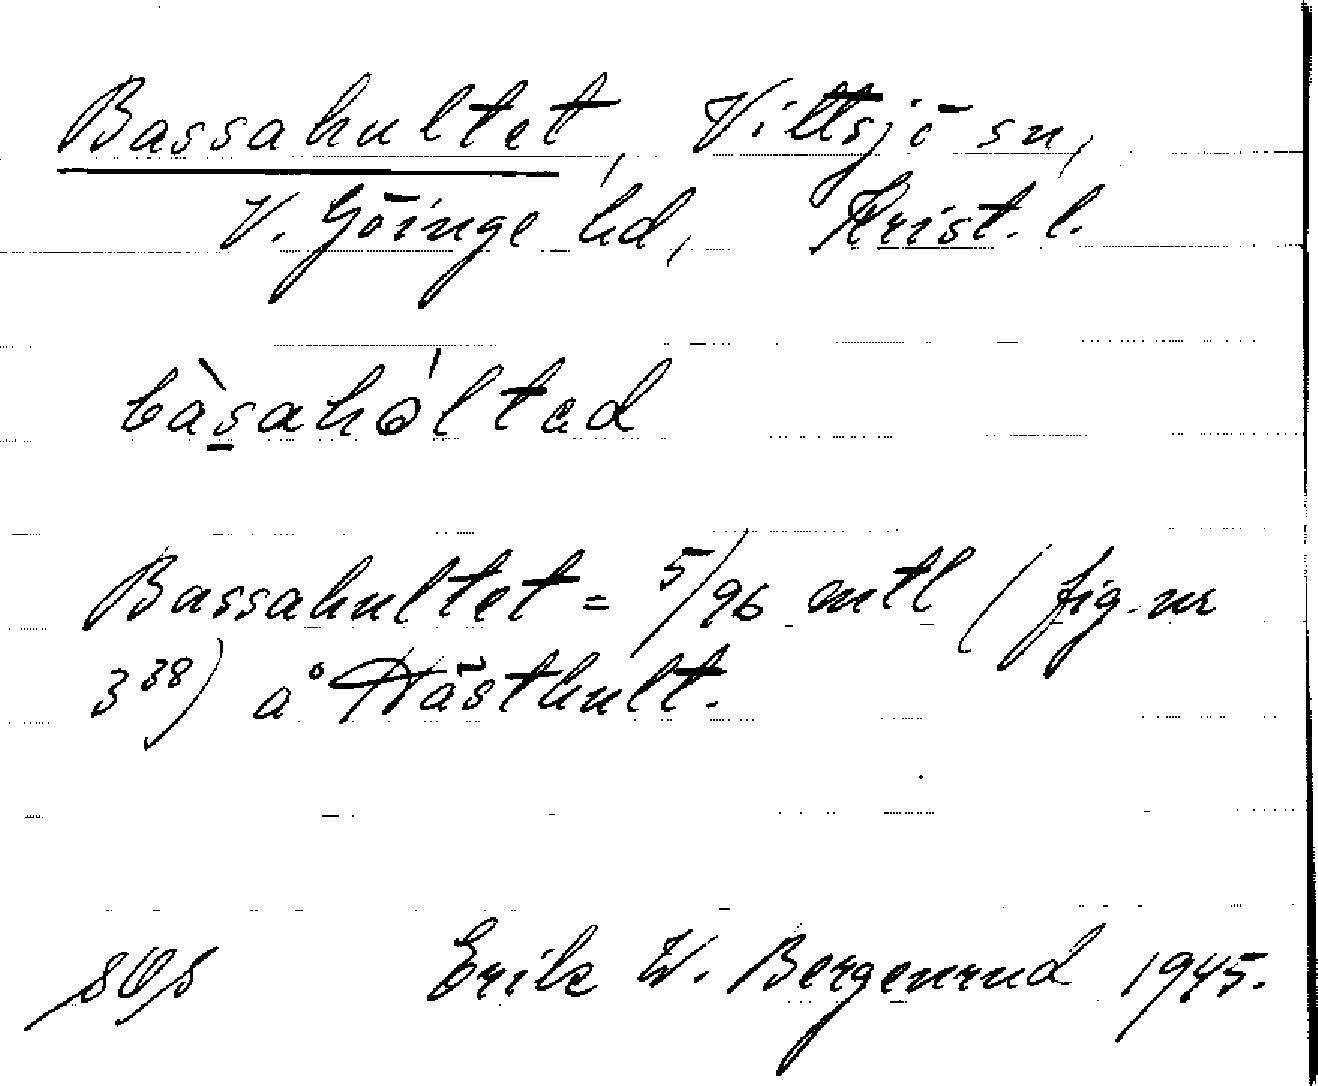 Bassahultet, Vittsjö sn,
V. Göinge hd, Krist. l.
bàsahóltad
Bassahultet = 5/96 mtl (fig. nr
3³⁸) å Hästhult.
Erik W. Bergenrud 1945.